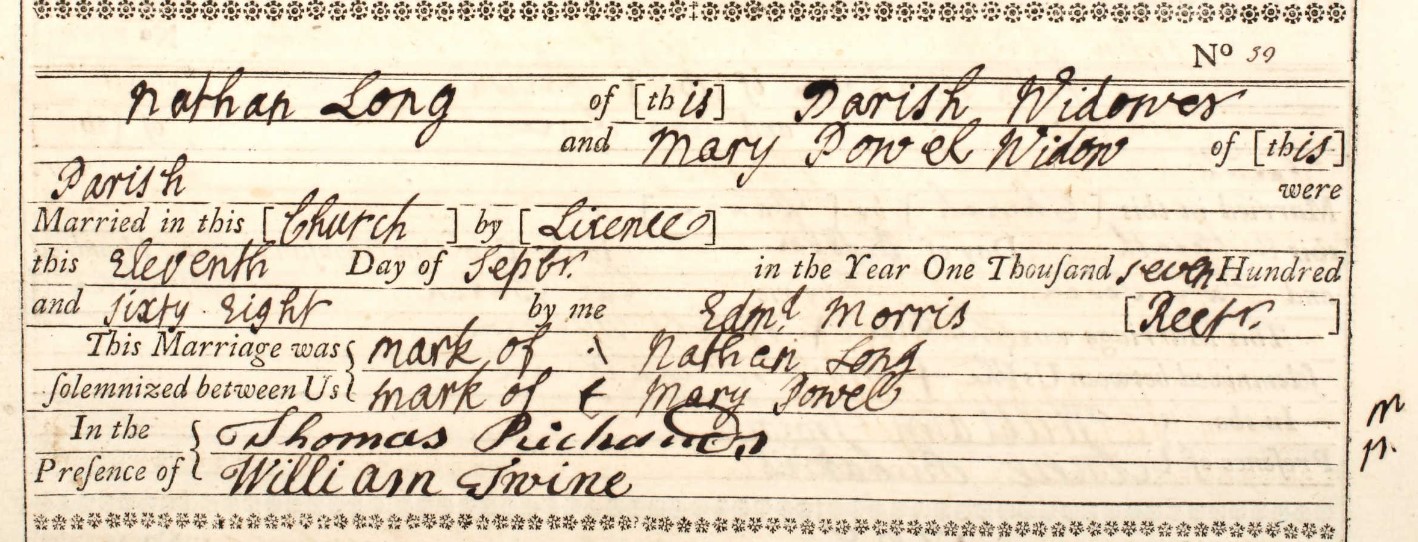 No 59
Nathan Long of [this] Parish Widower
and Mary Powel Widow of [this]
Parish were
Married in this [Church] by [Licence]
this Eleventh Day of Septr. in the Year One Thouſand seven Hundred
and sixty Eight by me Edmd. Morris [Rectr.]
This Marriage was { mark of Nathan Long
ſolemnized between Us { mark of Mary Powel
In the { Thomas
Preſence of { William Twine